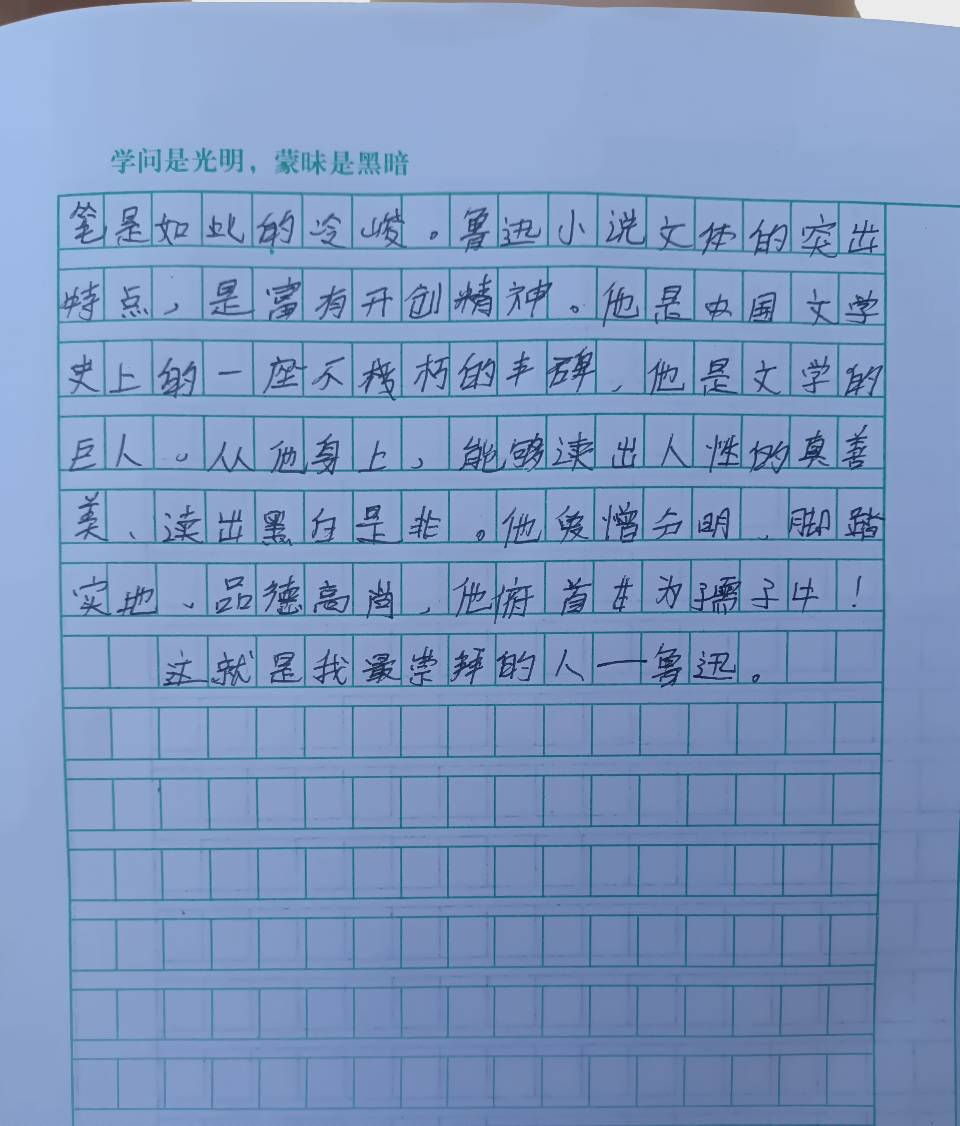 学问是光明，蒙昧是黑暗
笔是如此的冷峻。鲁迅小说文体的突出
特点，是富有开创精神。他是中国文学
史上的一座不朽的丰碑，他是文学的
巨人。从他身上，能够读出人性的真善
美、读出黑白是非。他爱憎分明、脚踏
实地、品德高尚，他俯首甘为孺子牛！
这就是我最崇拜的人一鲁迅。